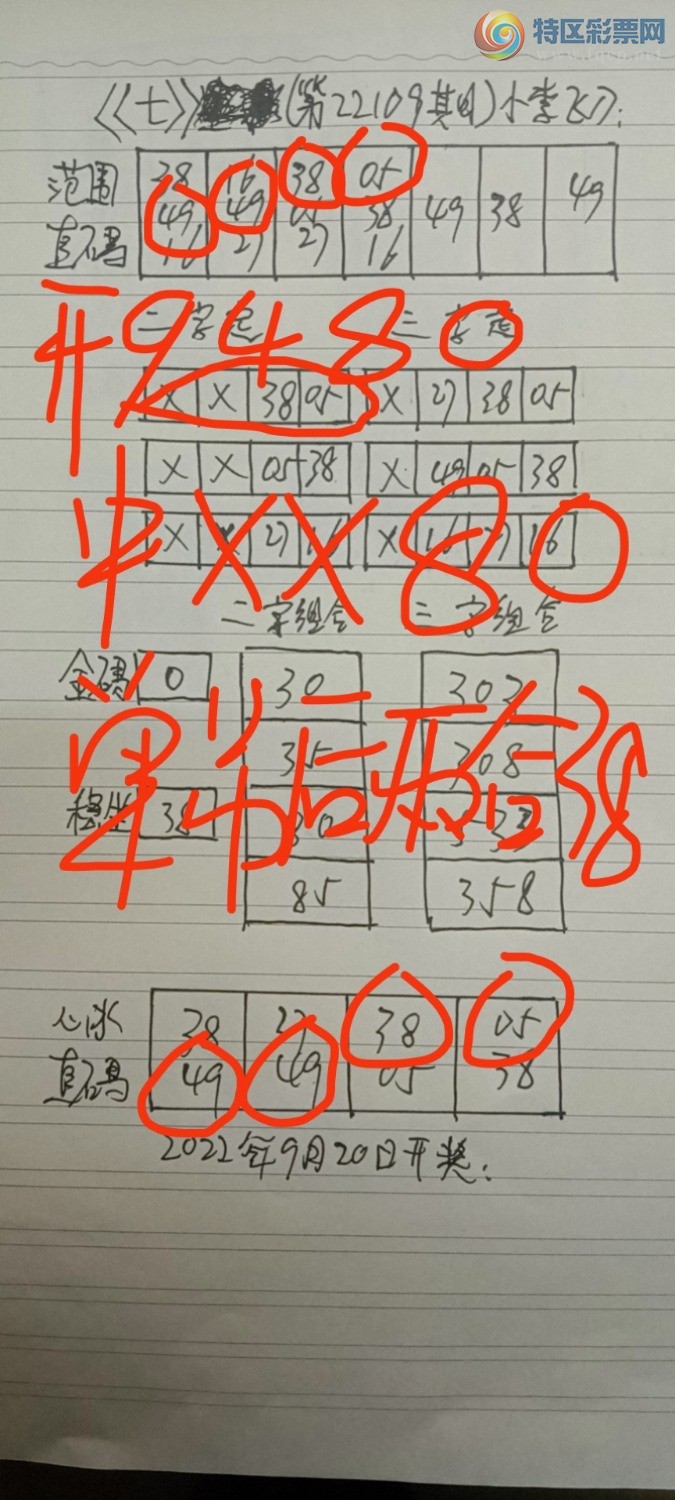 特区彩票网
www.tqcp.net
《七》(第22109期)小李飞刀:
范围 38 16 38 05
49 49 05 38 49 38 49
直码 16 27 27 16
二字定 三字定
开9480
X X 38 05 X 27 38 05
X X 05 38 X 49 05 38
X X 27 16 X 16 27 16
中XX80
二字组合 三字组合
金码 0 30 302
35 308
稳坐 38
85 358
38
心水 38 27 38 05
直码 49 49 05 38
2022年9月20日开奖: